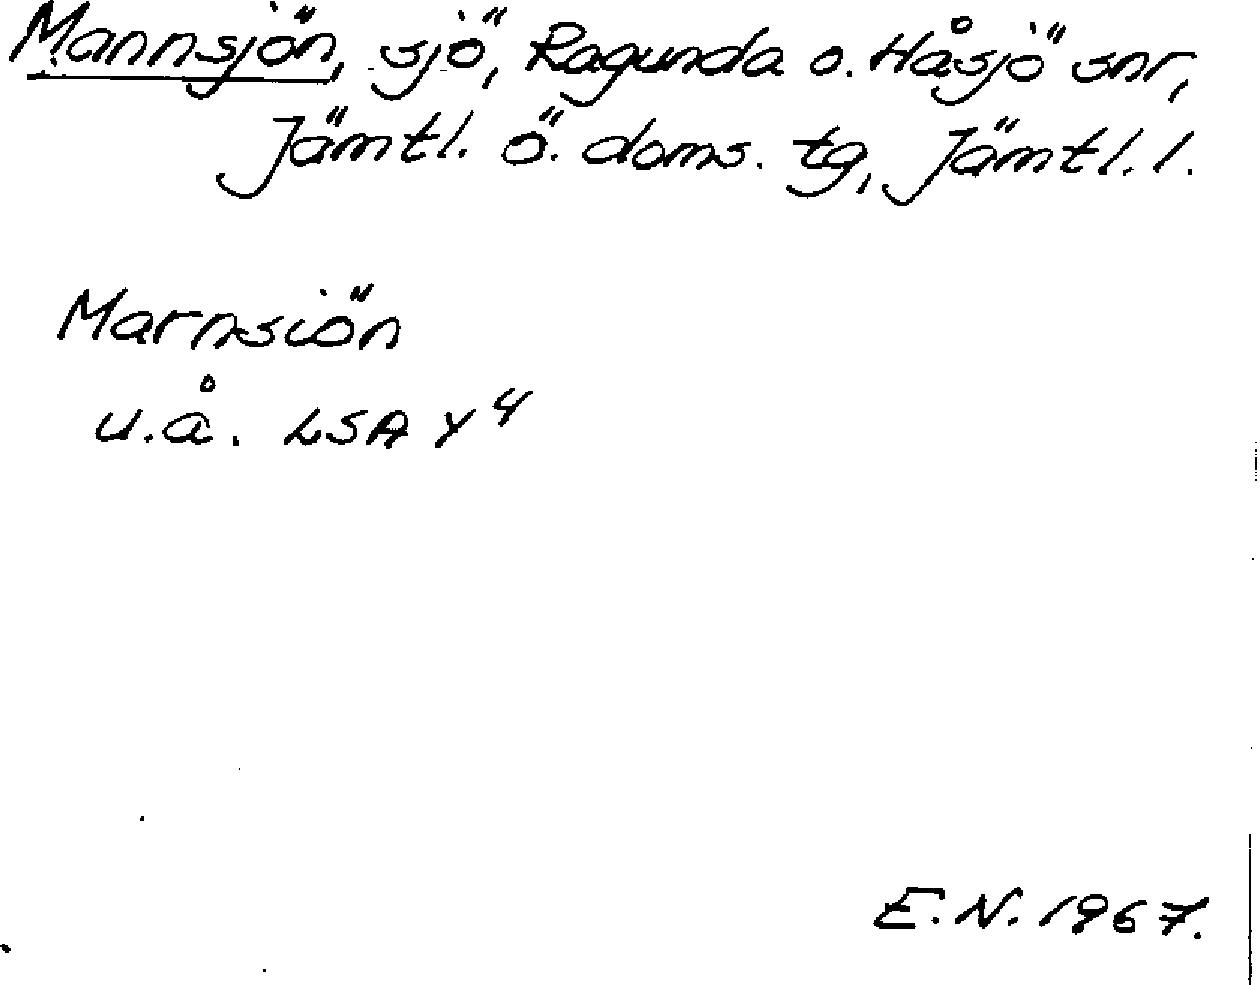 Mannsjön, sjö, Ragunda o. Håsjö snr,
Jämtl. ö. doms. tg, Jämtl. l.
Marnsiön
u.å. LSA Y 4
E.N. 1967.